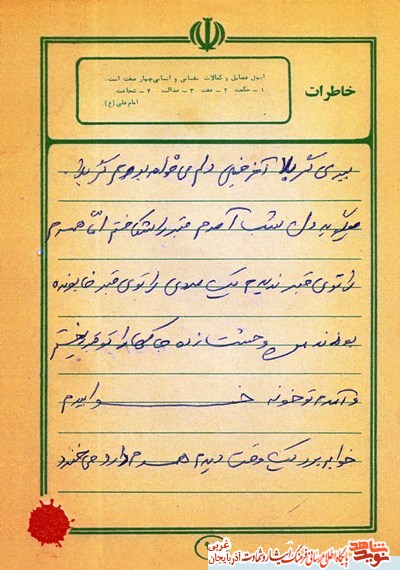 خاطرات
اصول فضایل و کمالات نفسانی و انسانی چهار صفت است.
۱ - حکمت ۲ - عفت ۳ - عدالت ۴ - شجاعت
امام علی (ع)
ببری کربلا آخر خیلی دلم می‌خواهد بروم کربلا.
میگوید دل شب آمدم قبر را شکافتم اما همسرم
را توی قبر ندیدم یک سیدی را توی قبر خابونده
بودند من وحشت زده خاکها را تو قبر ریختم
و آمدم تو خونه خوابیدم
خوابم برد یک وقت دیدم همسرم دارد می‌خندد
نوید شاهد
پایگاه اطلاع رسانی فرهنگ ایثار و شهادت آذربایجان غربی